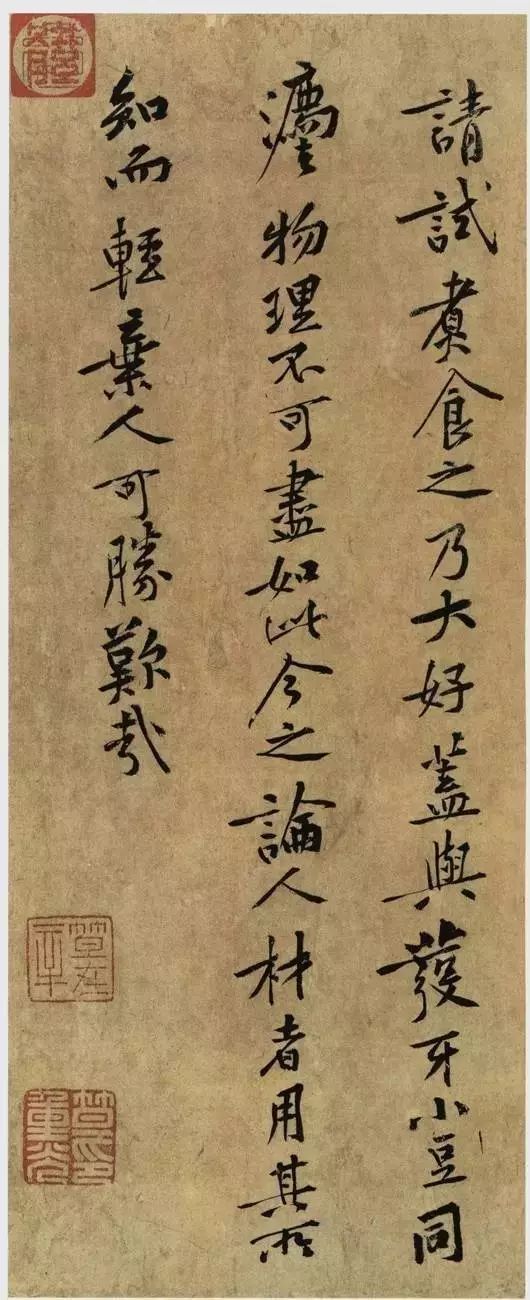 請試煑食之乃大好蓋與發牙小豆同
物理不可盡如此今之論人材者用其所
知而輕棄人可勝歎哉